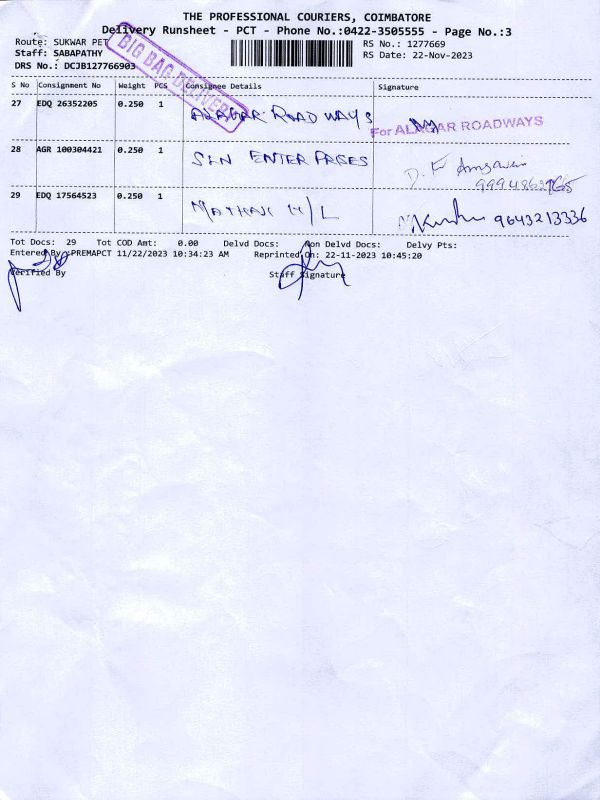 THE PROFESSIONAL COURIERS, COIMBATORE
Delivery Runsheet - PCT - Phone No.:0422-3505555 - Page No.:3
Route: SUKWAR PET
RS No.: 1277669
Staff: SABAPATHY
RS Date: 22-Nov-2023
DRS No.: DCJB127766903
BIG BAG DELIVERY
S No Consignment No Weight PCS Consignee Details Signature
27 EDQ 26352205 0.250 1 ALAGAR ROAD WAYS
For ALAGAR ROADWAYS
28 AGR 100304421 0.250 1 ENTER PRISES
29 EDQ 17564523 0.250 1 H/L 9643213336
Tot Docs: 29 Tot COD Amt: 0.00 Delvd Docs: Non Delvd Docs: Delvy Pts:
Entered By :PREMAPCT 11/22/2023 10:34:23 AM Reprinted On: 22-11-2023 10:45:20
Verified By Staff Signature